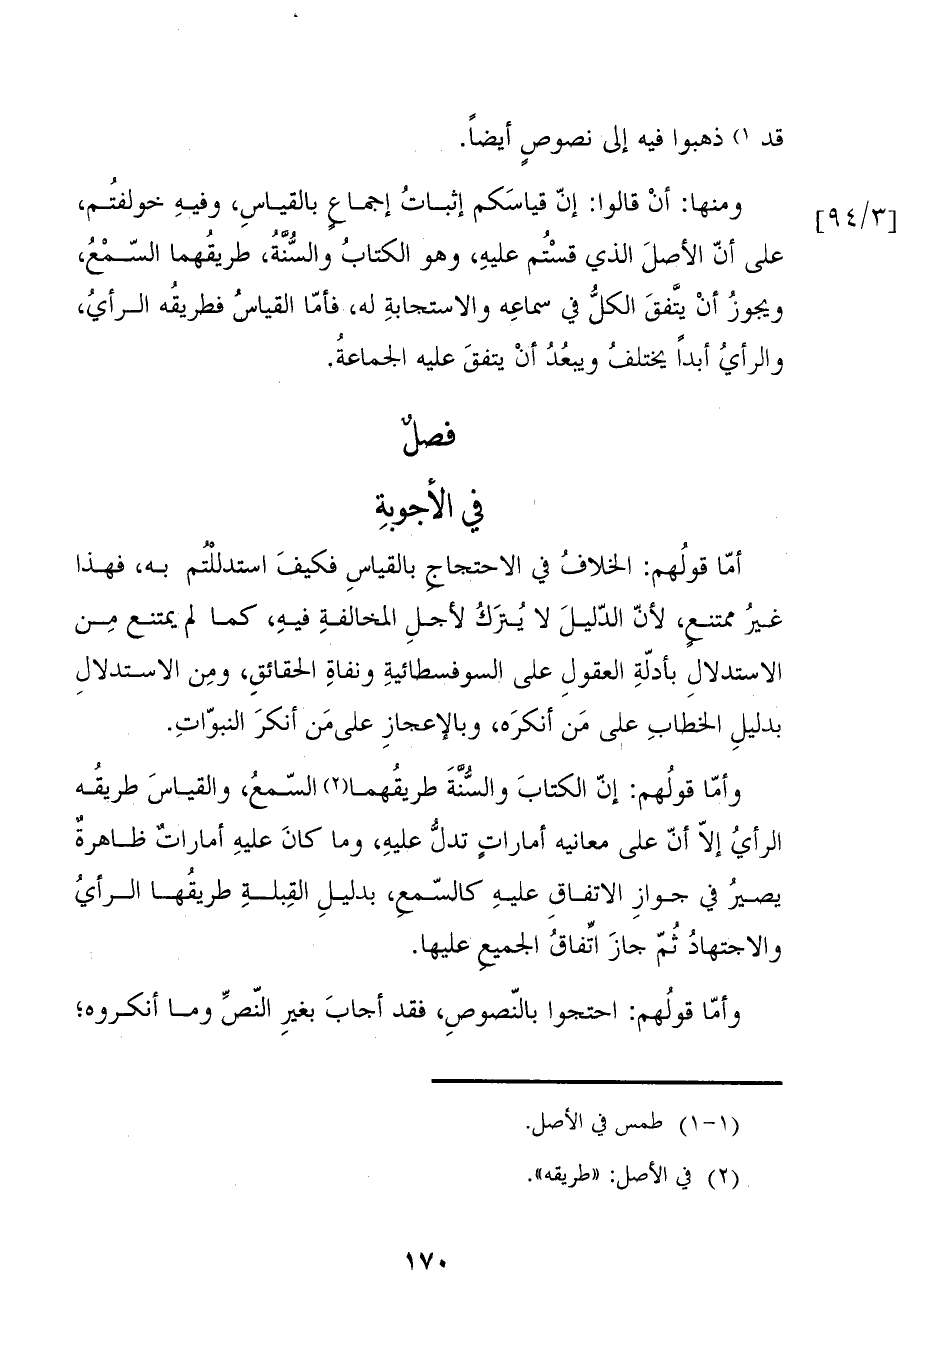 قد ١) ذهبوا فيه إلى نصوصٍ أيضاً.
[٩٤/٣]
ومنها: أنْ قالوا: إنّ قياسَكم إثباتُ إجماعٍ بالقياسِ، وفيهِ خولفتُم،
على أنّ الأصلَ الذي قسْتُم عليهِ، وهو الكتابُ والسُّنَّةُ، طريقُهما السّمْعُ،
ويجوزُ أنْ يتَّفقَ الكلُّ في سماعِه والاستجابةِ له، فأمّا القياسُ فطريقُه الرأيُ،
والرأيُ أبداً يختلفُ ويبعُدُ أنْ يتفقَ عليه الجماعةُ.
فصلٌ
في الأجوبةِ
أمّا قولُهم: الخلافُ في الاحتجاجِ بالقياسِ فكيفَ استدللْتُم به، فهذا
غيرُ ممتنعٍ، لأنّ الدّليلَ لا يُتركُ لأجلِ المخالفةِ فيهِ، كما لم يمتنع مِن
الاستدلالِ بأدلّةِ العقولِ على السوفسطائيةِ ونفاةِ الحقائقِ، ومِن الاستدلالِ
بدليلِ الخطابِ على مَن أنكرَه، وبالإعجازِ على مَن أنكرَ النبوّاتِ.
وأمّا قولُهم: إنّ الكتابَ والسُّنَّةَ طريقُهما(٢) السّمعُ، والقياسَ طريقُه
الرأيُ إلاّ أنّ على معانيه أماراتٍ تدلُّ عليهِ، وما كانَ عليهِ أماراتٌ ظاهرةٌ
يصيرُ في جوازِ الاتفاقِ عليهِ كالسّمعِ، بدليلِ القِبلةِ طريقُها الرأيُ
والاجتهادُ ثُمّ جازَ اتّفاقُ الجميعِ عليها.
وأمّا قولُهم: احتجوا بالنّصوصِ، فقد أجابَ بغيرِ النّصِّ وما أنكروه؛
(١-١) طمس في الأصل.
(٢) في الأصل: «طريقه».
١٧٠